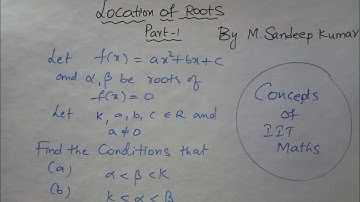 Location of Roots
Part-1
By M. Sandeep Kumar
Let f(x) = ax²+bx+c
and α, β be roots of
f(x)=0
Let K, a, b, c ∈ R and
a≠0
Find the Conditions that
(a) α < β < K
(b) K ≤ α < β
Concepts
of
IIT
Maths